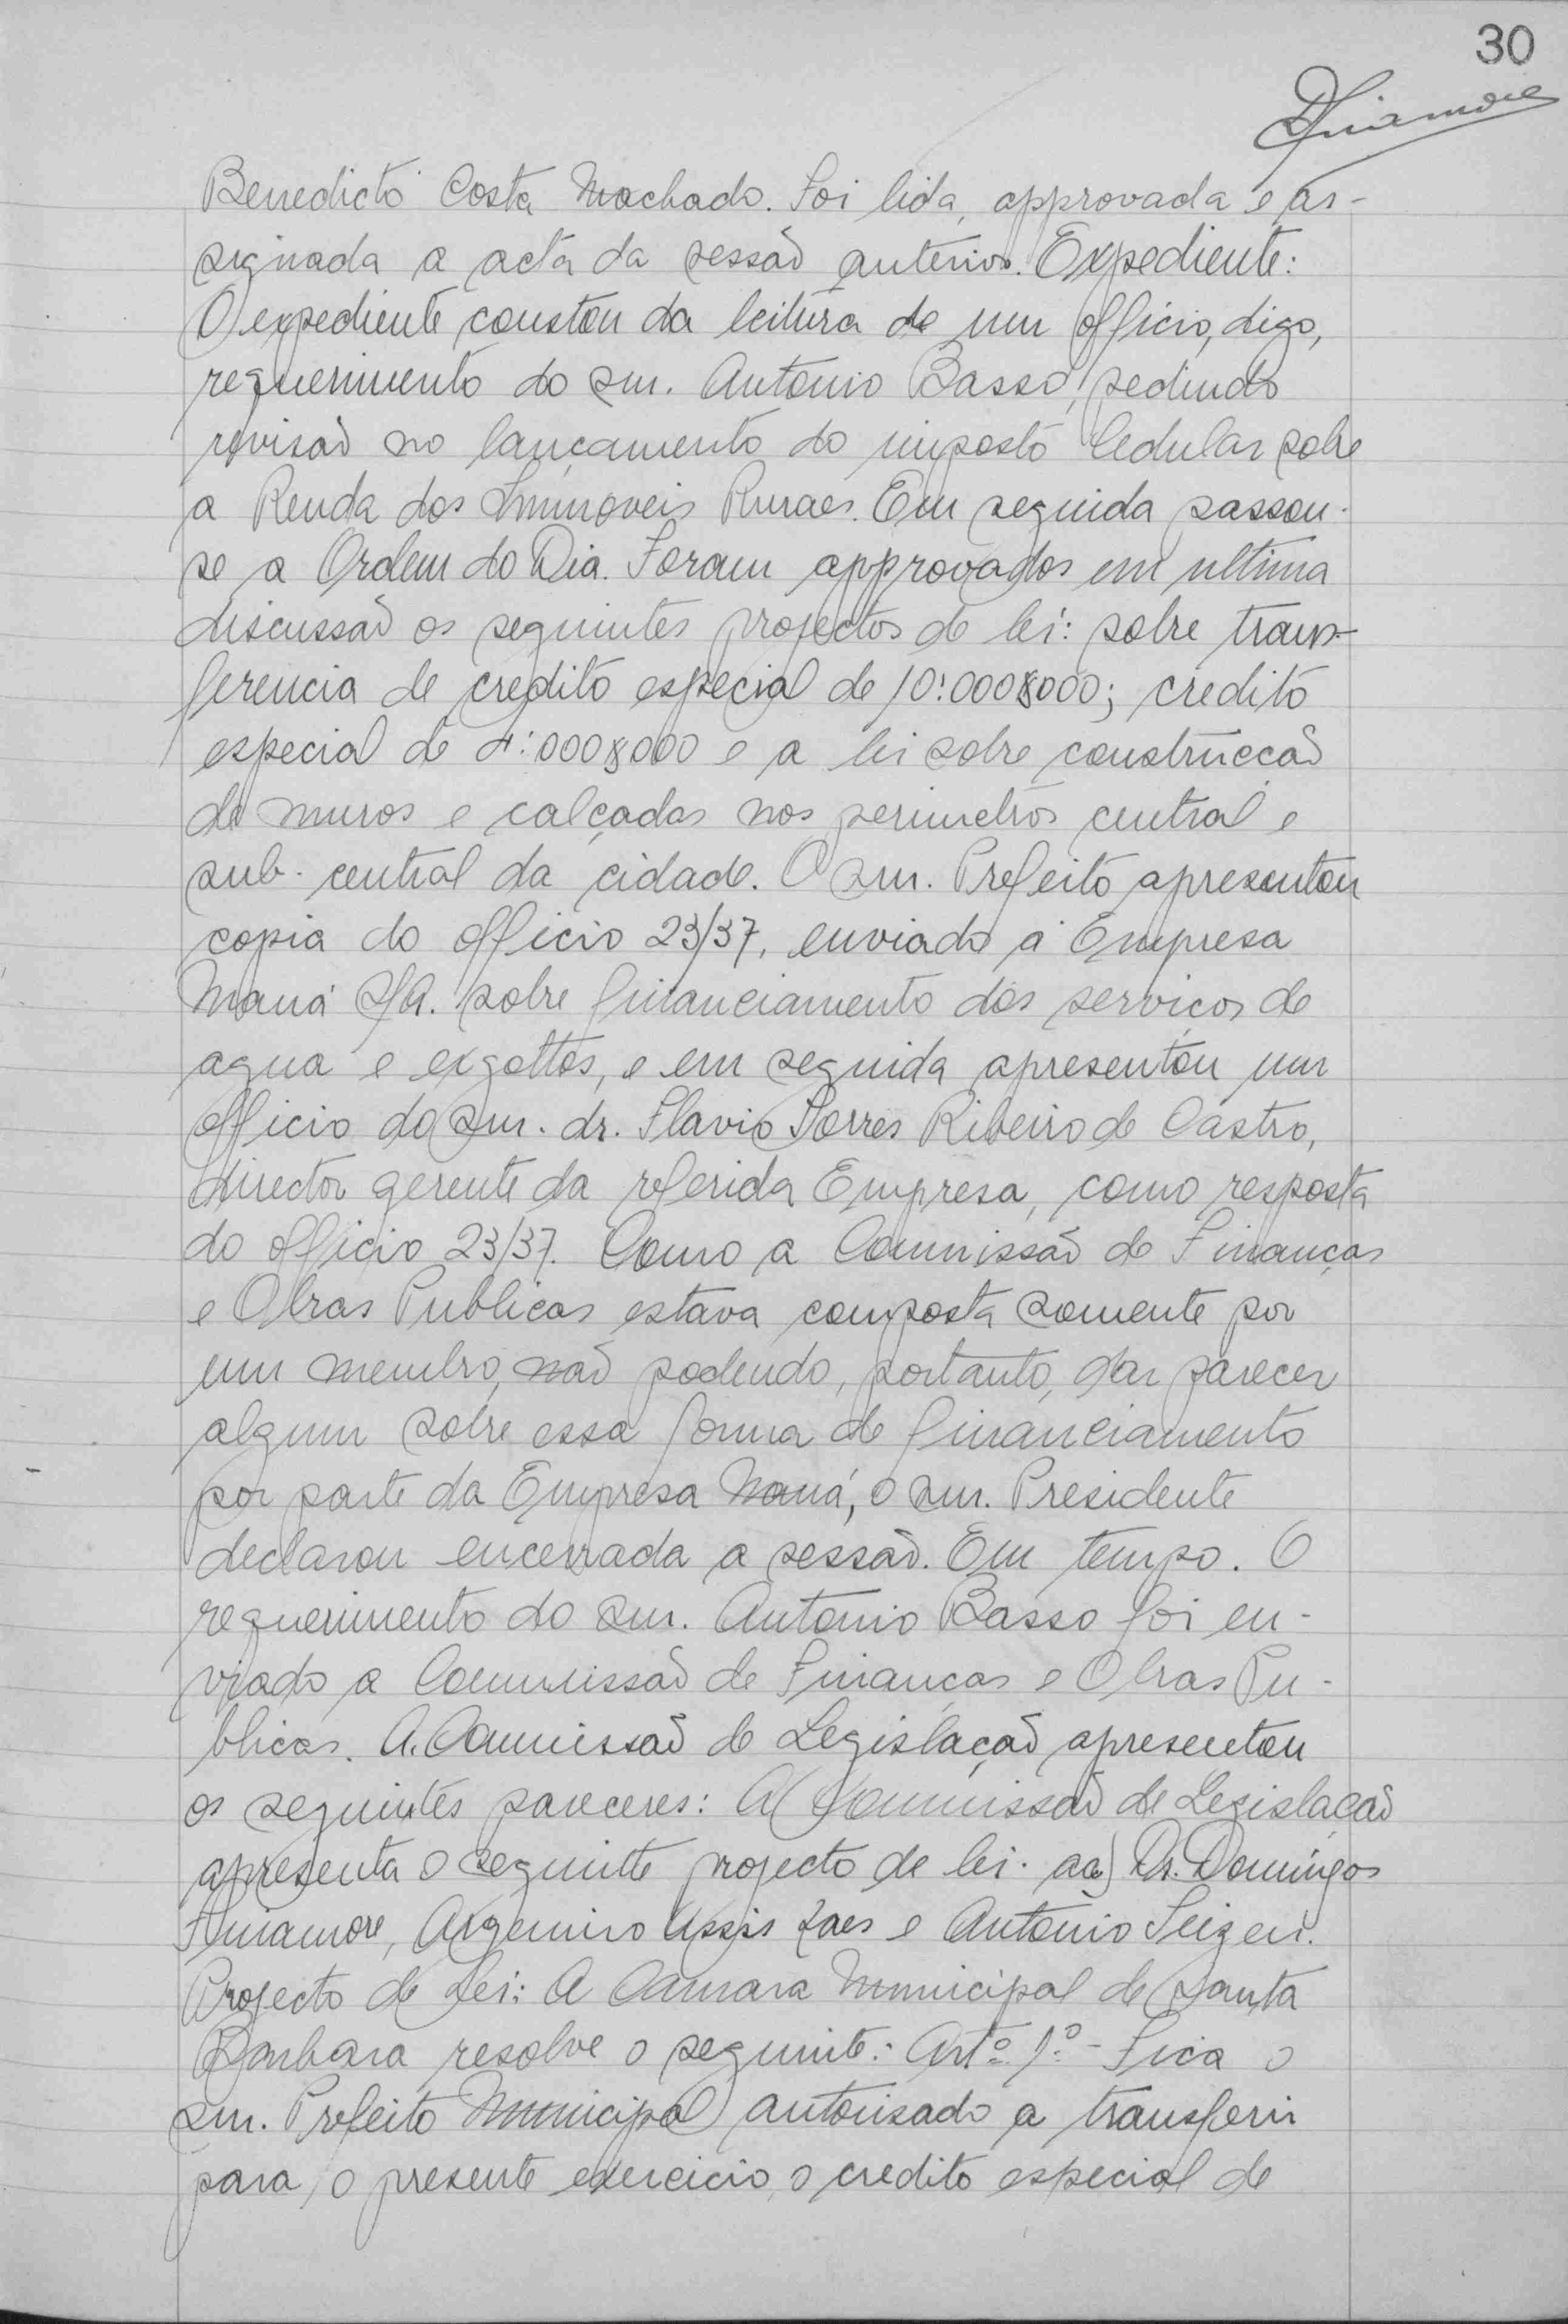 30
Benedicto Costa Machado. Foi lida, approvada e as-
signada a acta da sessão anterior. Expediente:
O expediente constou da leitura de um officio, digo,
requerimento do snr. Antonio Basso, pedindo
revisão no lançamento do imposto Cedular sobre
a Renda dos Immoveis Ruraes. Em seguida passou-
se a Ordem do Dia. Foram approvados em ultima
discussão os seguintes projectos de lei: sobre trans-
ferencia de credito especial de 10:000$000; credito
especial de 4:000$000 e a lei sobre construcção
de muros e calçadas nos perimetros central e
sub-central da cidade. O snr. Prefeito apresentou
copia do officio 23/37, enviado á Empresa
Mauá S/A. sobre financiamento dos serviços de
agua e exgottos, e em seguida apresentou um
officio do snr. dr. Flavio Torres Ribeiro de Castro,
director gerente da referida Empresa, como resposta
do officio 23/37. Como a Commissão de Finanças
e Obras Publicas estava composta somente por
um membro, não podendo, portanto, dar parecer
algum sobre essa forma de financiamento
por parte da Empresa Mauá, o snr. Presidente
declarou encerrada a sessão. Em tempo. O
requerimento do snr. Antonio Basso foi en-
viado a Commissão de Finanças e Obras Pu-
blicas. A Commissão de Legislação apresentou
os seguintes pareceres: A Commissão de Legislação
apresenta o seguinte projecto de lei. aa) Dr. Domingos
Finamore, Argemiro Assis Paes e Antonio
Projecto de Lei: A Camara Municipal de Santa
Barbara resolve o seguinte: Artº 1º - Fica o
snr. Prefeito Municipal autorisado a transferir
para o presente exercicio, o credito especial de